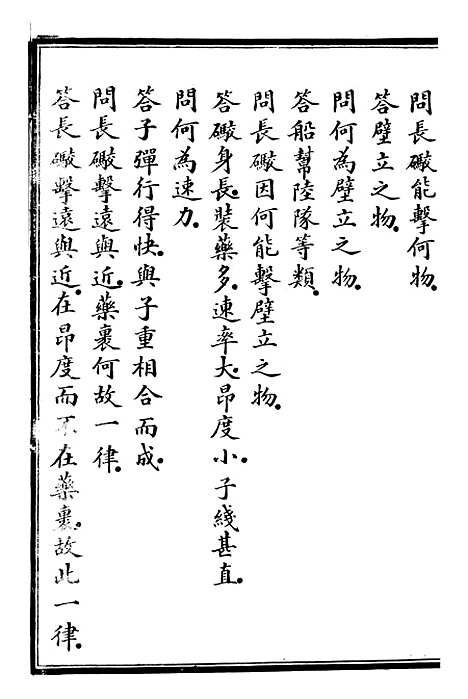 問長礮能擊何物
答壁立之物
問何為壁立之物
答船幫陸隊等類
問長礮因何能擊壁立之物
答礮身長裝藥多速率大昂度小子綫甚直
問何為速力
答子彈行得快與子重相合而成
問長礮擊遠與近藥裹何故一律
答長礮擊遠與近在昂度而不在藥裹故此一律